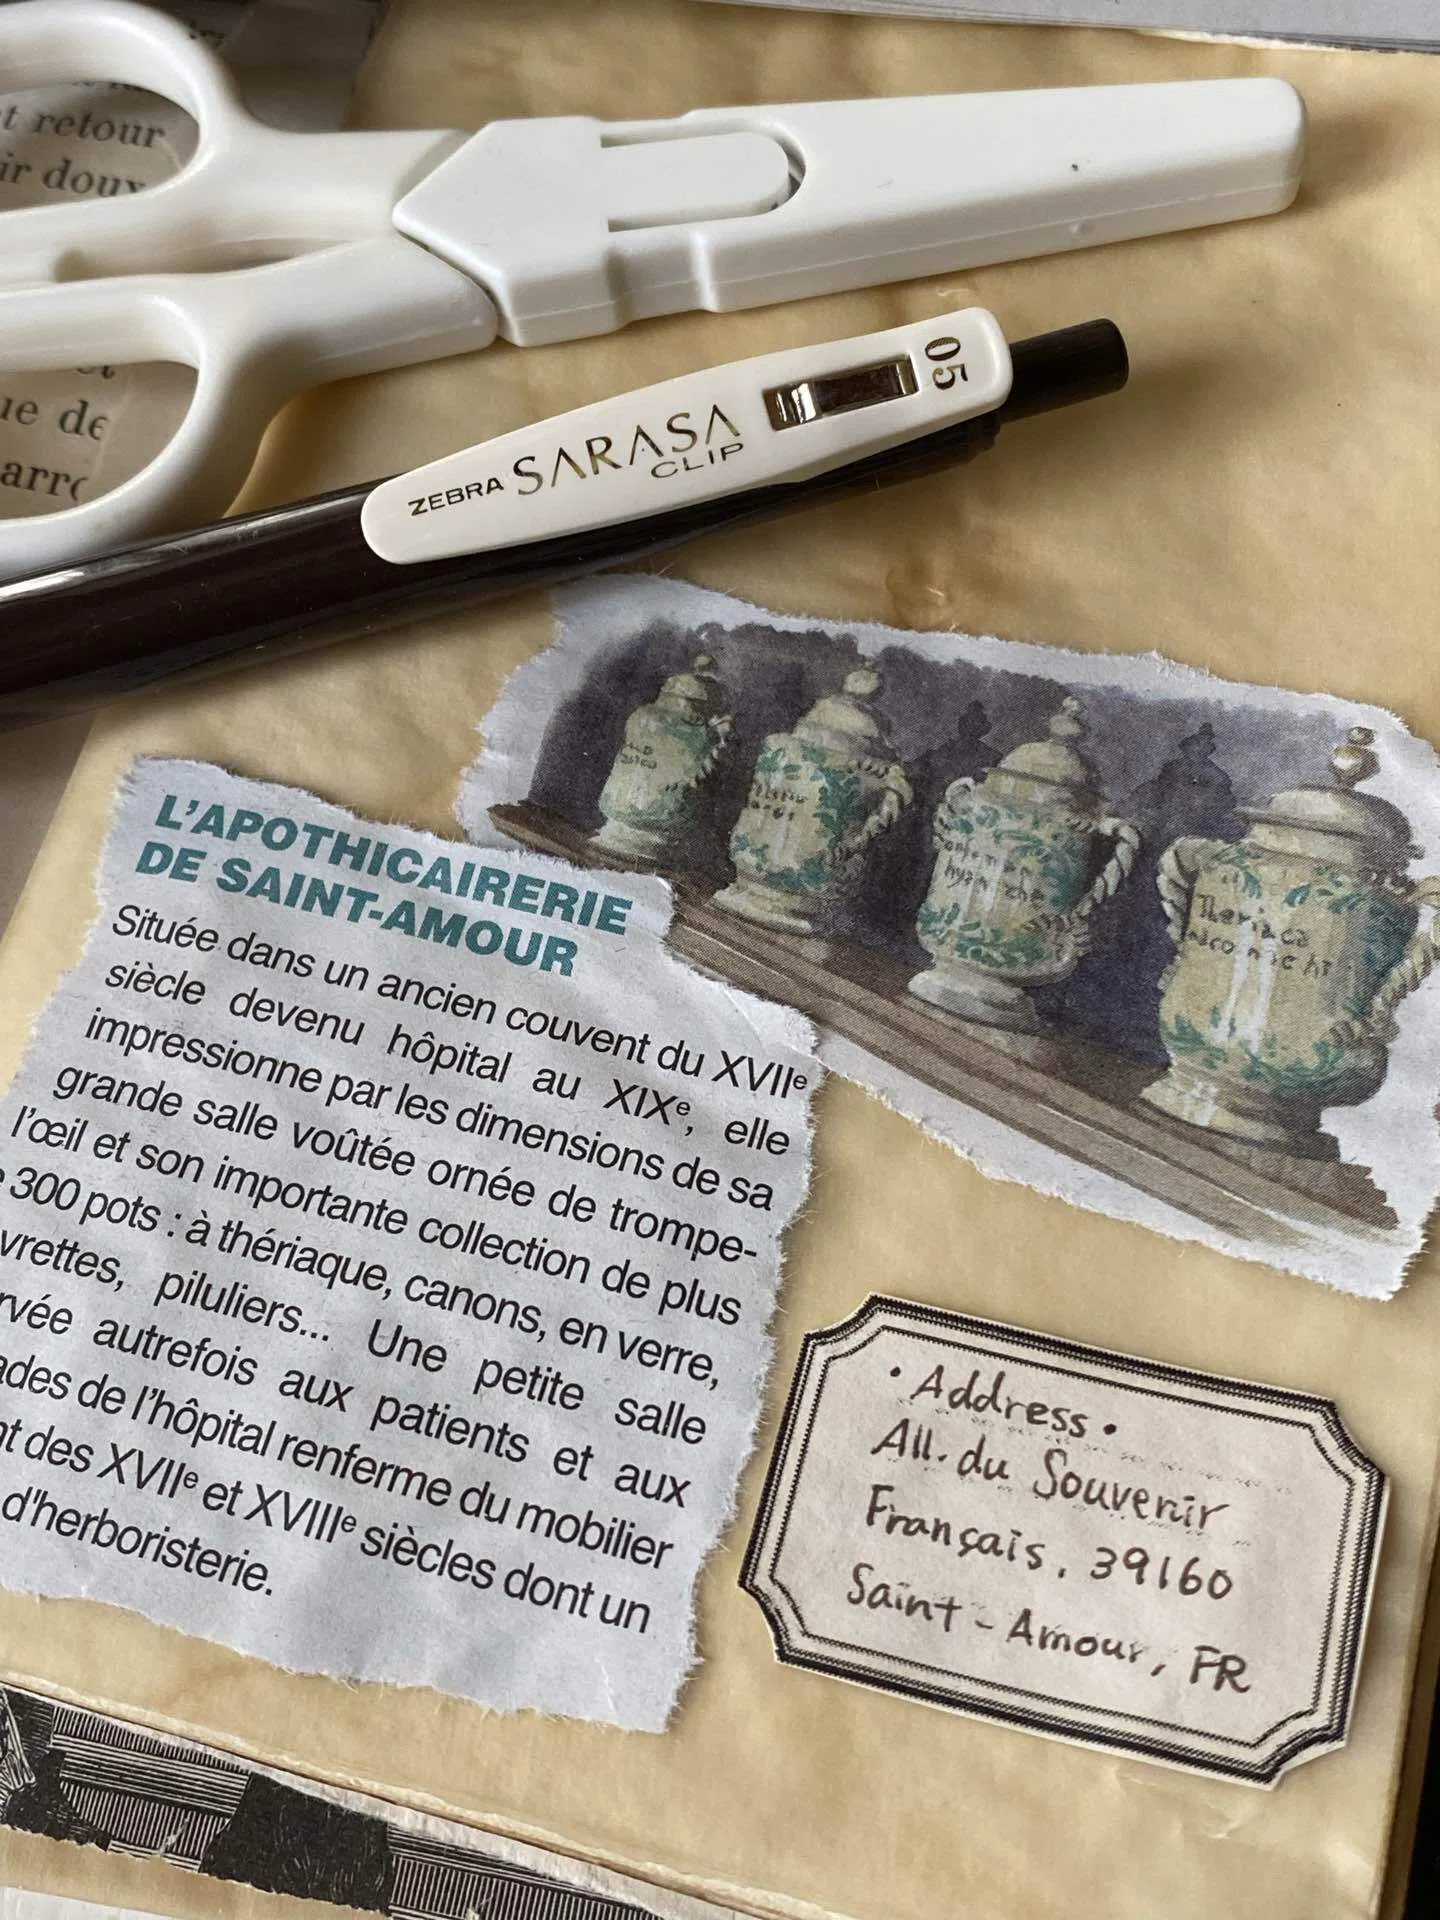 et retour
ir doux
ue de
ZEBRA SARASA CLIP 05
L'APOTHICAIRERIE
DE SAINT-AMOUR
Située dans un ancien couvent du XVIIe
siècle devenu hôpital au XIXe, elle
impressionne par les dimensions de sa
grande salle voûtée ornée de trompe-
l'œil et son importante collection de plus
300 pots : à thériaque, canons, en verre,
vrettes, piluliers... Une petite salle
rvée autrefois aux patients et aux
ades de l'hôpital renferme du mobilier
nt des XVIIe et XVIIIe siècles dont un
d'herboristerie.
Theriaca
• Address •
All. du Souvenir
Français, 39160
Saint-Amour, FR